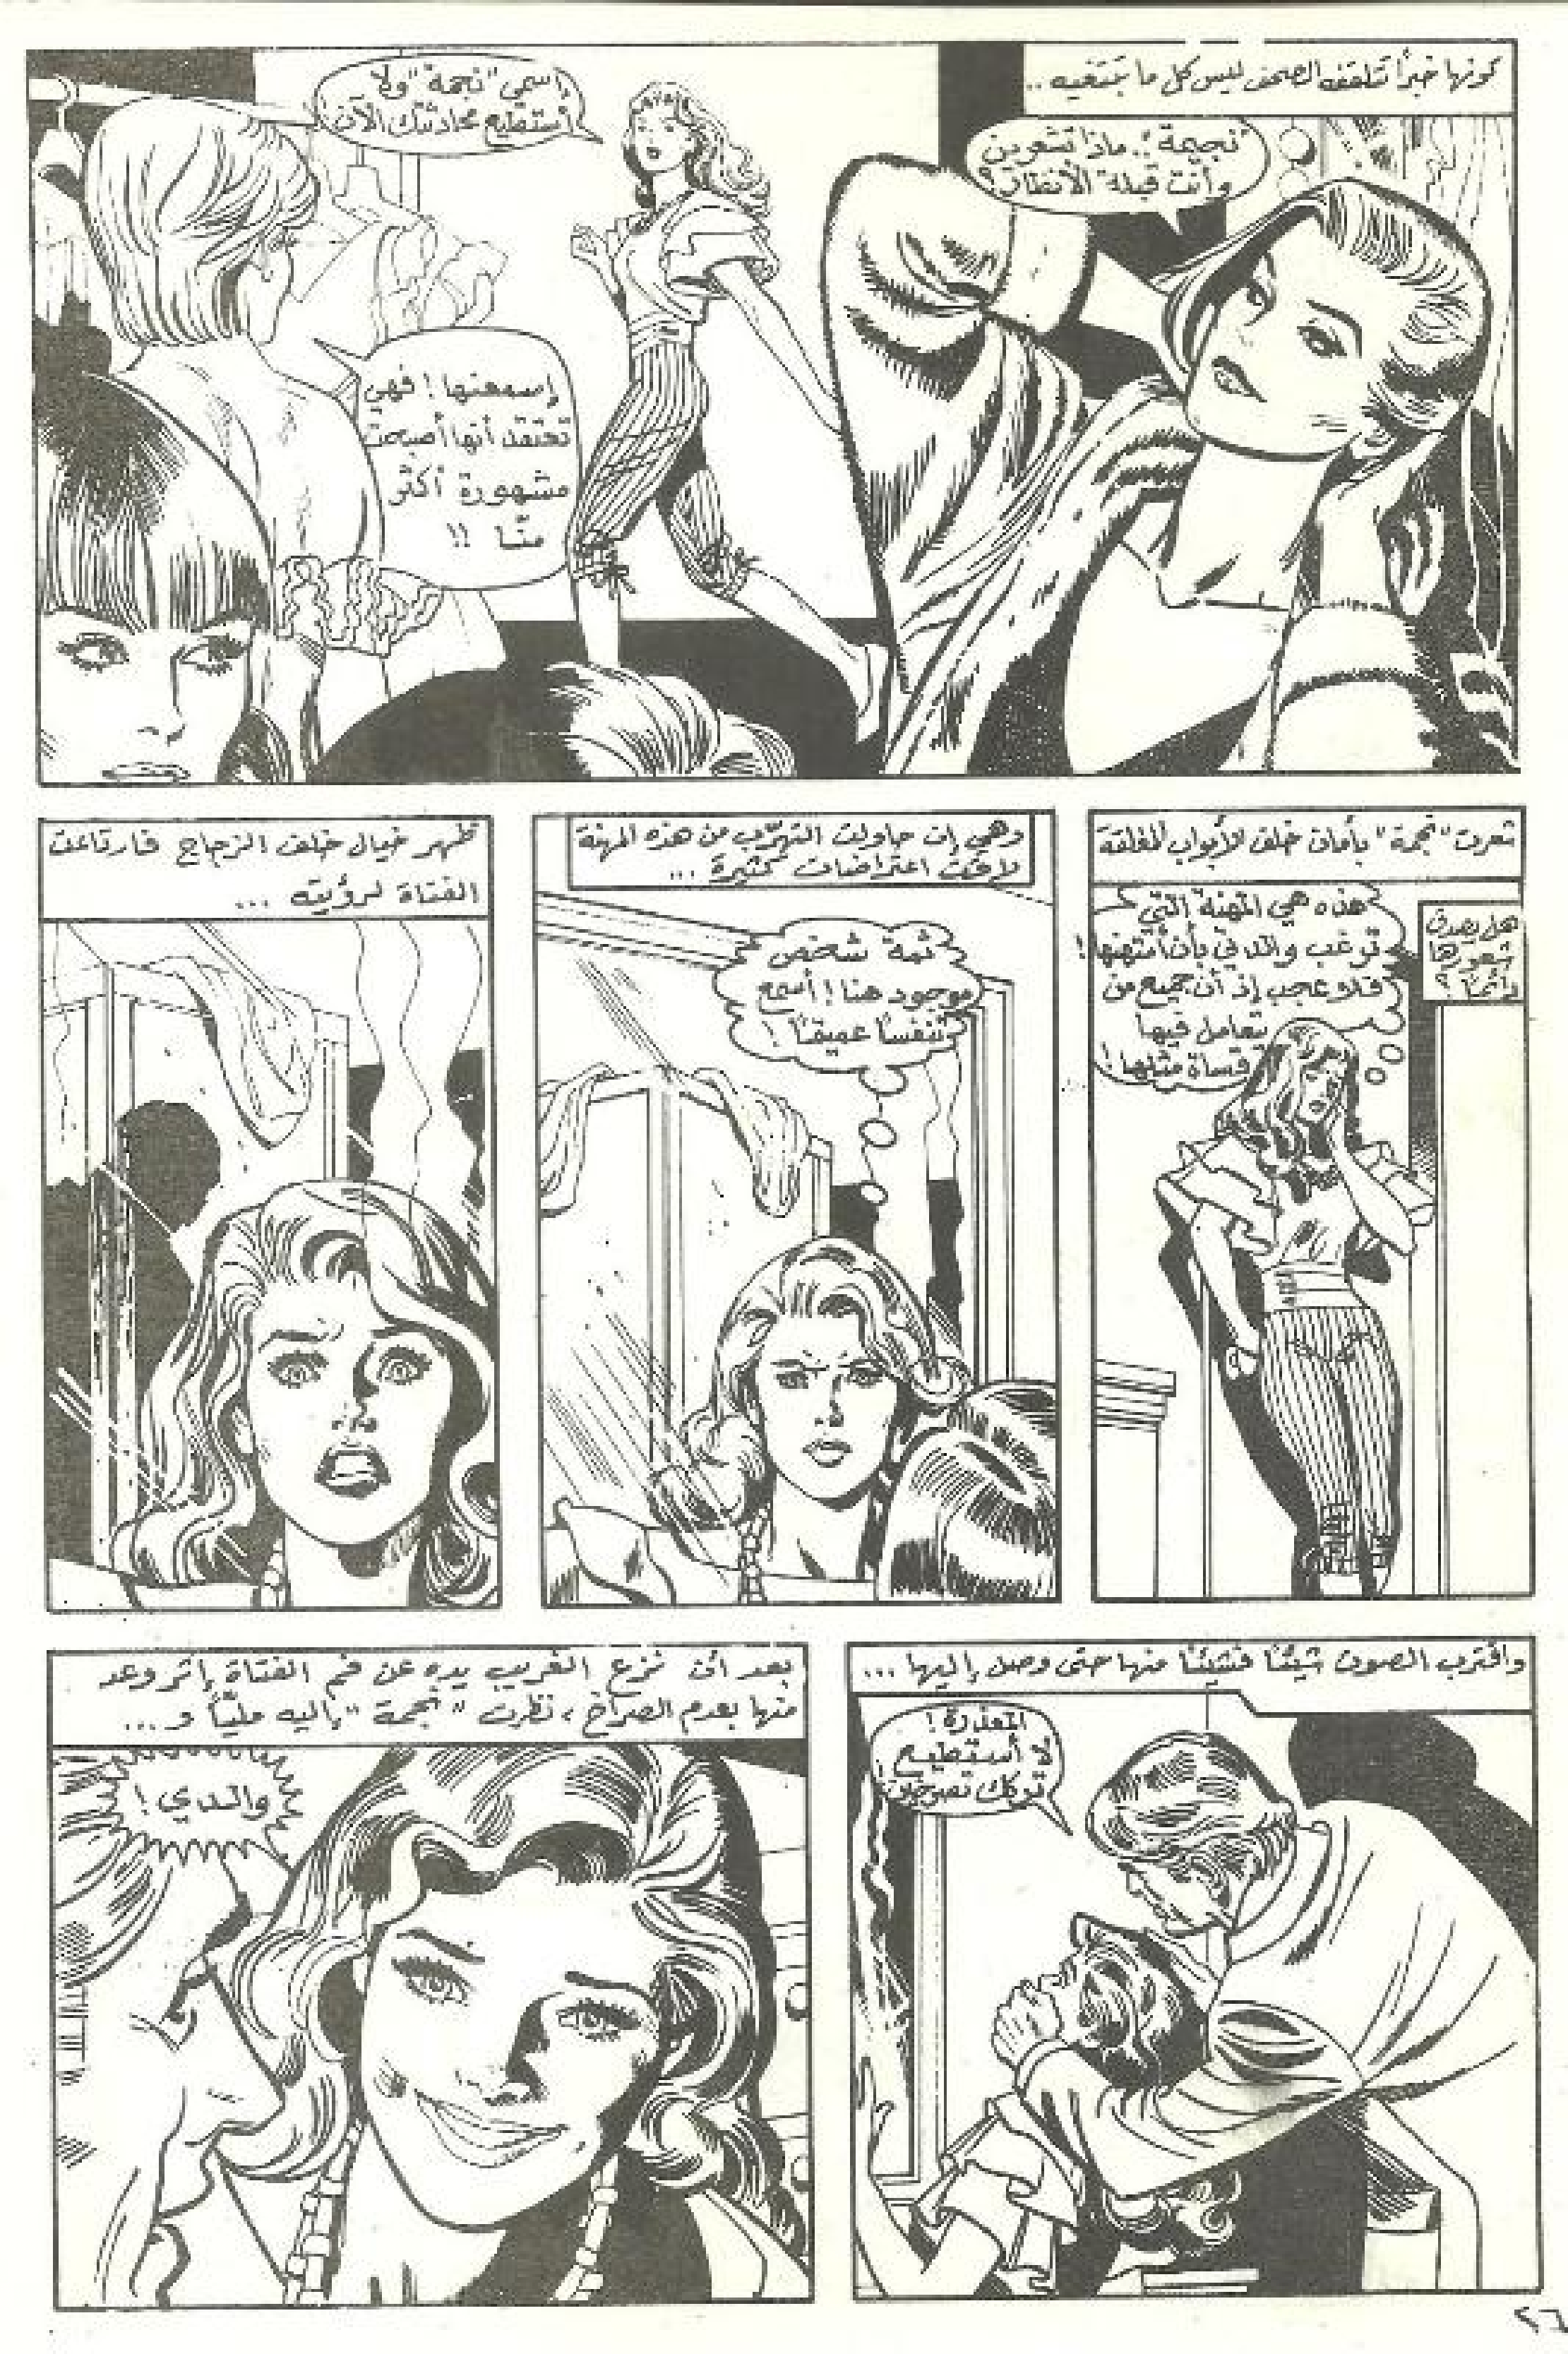 كونها خبراً تتلقفه الصحف ليس كل ما تبتغيه ..
"نجيمة"! .. ماذا تشعرين
وأنت قبلة الأنظار؟
إسمي "نجمة" ولا
أستطيع محادثتك الآن!
إسمعنها! فهي
تعتقد أنها أصبحت
مشهورة أكثر
منّا !!
شعرت "نجمة" بأمان خلف الأبواب المغلقة
هل يصدق
شعورها
دائماً؟
هذه هي المهنة التي
ترغب والدتي بأن أمتهنها!
فلا عجب إذ أن جميع من
تعامل فيها
قساة مثلها!
وهي إن حاولت التهرّب من هذه المهنة
لاقت اعتراضات كثيرة ...
ثمة شخص
موجود هنا! أسمع
تنفساً عميقاً!
ظهر خيال خلف الزجاج فارتاعت
الفتاة لرؤيته ...
واقترب الصوت شيئاً فشيئاً منها حتى وصل إليها ...
المعذرة!
لا أستطيع
تركك تصرخين!
بعد أن نزع الغريب يده عن فم الفتاة إثر وعد
منها بعدم الصراخ، نظرت "نجمة" إليه مليّاً و...
والدي!
٢٦